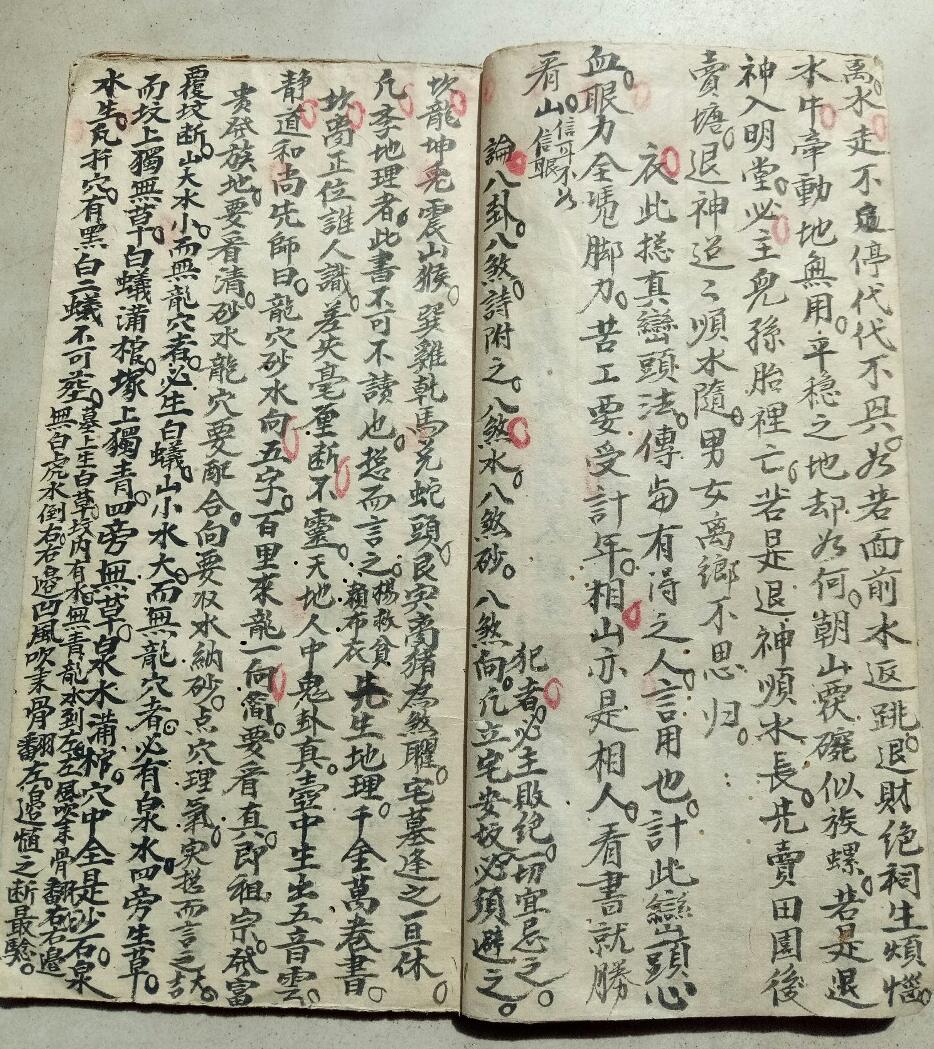 离水走不停代代不具如若面前水返跳退財绝祠生煩惱
水牛牽動地無用平稳之地却如何朝山要礲似族螺若是退
神入明堂必主兒孫胎裡亡若是退神順水長先賣田園後
賣塘退神迢々順水隨男女离鄉不思归
衣此捴真巒頭法傳留有淂之人言用也計此巒頭心
血眼力全凴脚力苦工要受計年相山亦是相人看書就勝
看山信耳不如信眼
犯者必主敗绝一切宜忌之
論八卦八煞詩附之八煞水八煞砂八煞向凡立宅安坟必須避之
坎龍坤兔震山猴巽雞乾馬兑蛇頭艮寅离豬為煞曜宅墓逢之一旦休
凡李地理者此書不可不讀也捴而言之楊救貧頼布衣先生地理千金萬卷書
坎离正位誰人識差失毫厘断不靈天地人中鬼卦真壺中生出五音雲
静道和尚先師曰龍穴砂水向五字百里來龍一向箇要看真即祖宗發富
貴發族地要看清砂水龍穴要配合向要収水納砂点穴理氣实捴而言之
覆坟断山大水小而無龍穴者必生白蟻山小水大而無龍穴者必有泉水四旁生草
而坟上獨無草白蟻滿棺塚上獨青四旁無草泉水滿棺穴中全是沙石泉
水生瓦扦穴有黑白二蟻不可塟墓上生白草坟内有
無白虎水倒右右邉凹風吹来骨翻左邉恤之断最驗